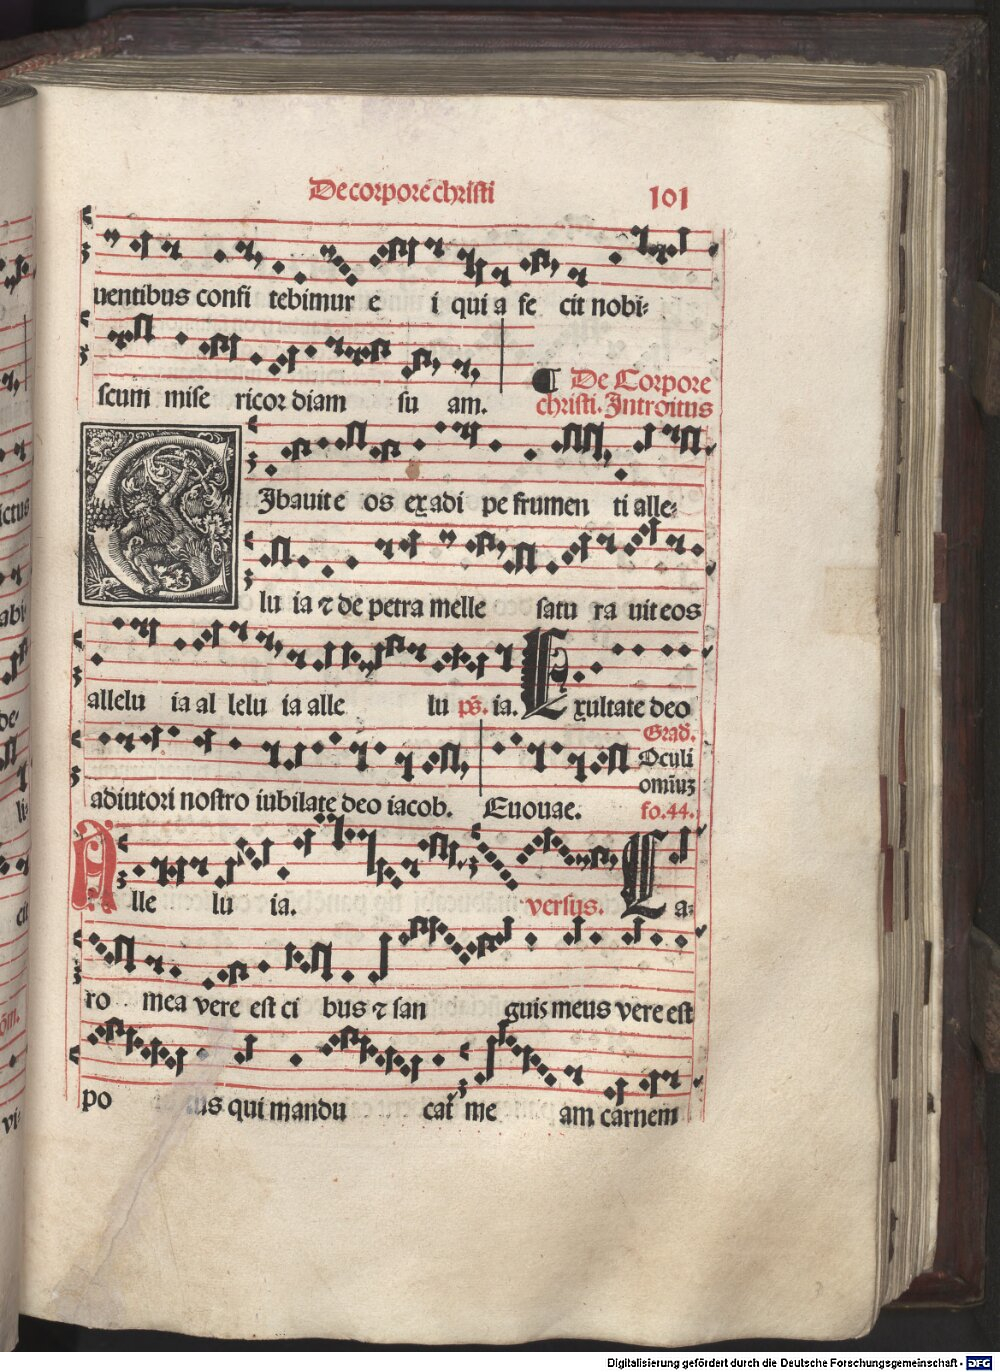 De corpore christi 101
uentibus confi tebimur e i qui a fe cit nobi-
scum mise ricor diam su am. De Corpore
christi. Introitus
CIbauit e os ex adi pe frumen ti alle-
lu ia ⁊ de petra melle satu ra uit eos
allelu ia al lelu ia alle lu ps. ia. Exultate deo
Grad.
adiutori nostro iubilate deo iacob. Euouae. Oculi
omiuꝫ
fo.44.
Alle lu ia. versus. Ca-
ro mea vere est ci bus ⁊ san guis meus vere est
po us qui mandu cat me am carnem
Digitalisierung gefördert durch die Deutsche Forschungsgemeinschaft - DFG